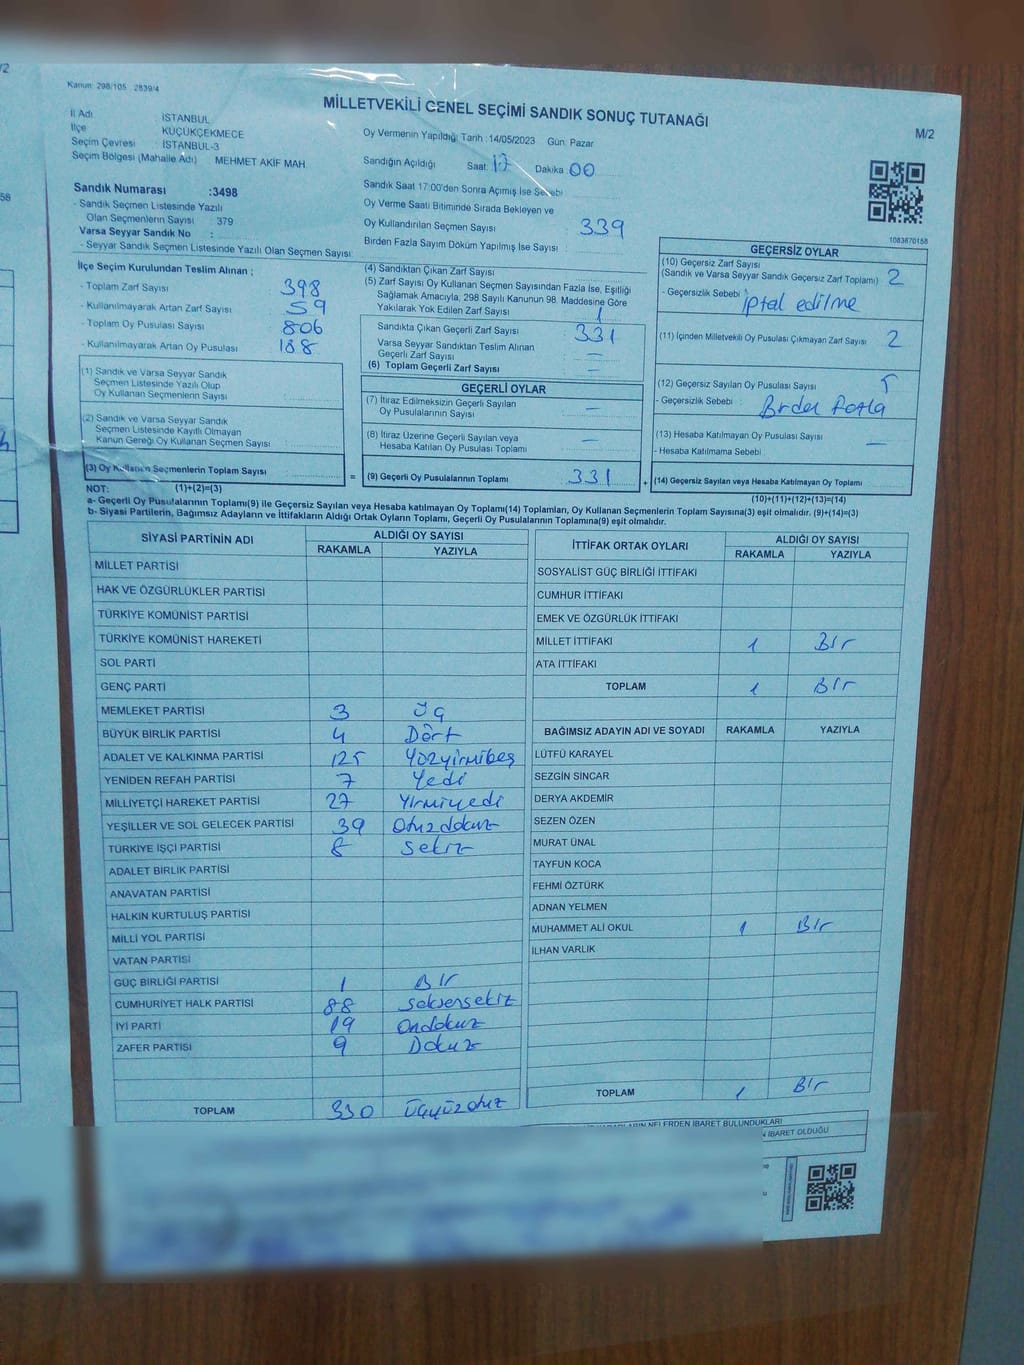 /2
Kanun: 298/105 2839/4
MİLLETVEKİLİ GENEL SEÇİMİ SANDIK SONUÇ TUTANAĞI
M/2
İl Adı İSTANBUL
İlçe KÜÇÜKÇEKMECE
Seçim Çevresi : İSTANBUL-3
Seçim Bölgesi (Mahalle Adı) MEHMET AKİF MAH.
Oy Vermenin Yapıldığı Tarih :14/05/2023 Gün: Pazar
Sandığın Açıldığı Saat: 17 Dakika 00
Sandık Saat 17:00'den Sonra Açımış İse Sebebi
Sandık Numarası :3498
- Sandık Seçmen Listesinde Yazılı
Olan Seçmenlerin Sayısı : 379
Varsa Seyyar Sandık No :
- Seyyar Sandık Seçmen Listesinde Yazılı Olan Seçmen Sayısı:
Oy Verme Saati Bitiminde Sırada Bekleyen ve
Oy Kullandırılan Seçmen Sayısı 339
Birden Fazla Sayım Döküm Yapılmış İse Sayısı :
1083870158
İlçe Seçim Kurulundan Teslim Alınan ;
- Toplam Zarf Sayısı 398
- Kullanılmayarak Artan Zarf Sayısı 59
- Toplam Oy Pusulası Sayısı 806
- Kullanılmayarak Artan Oy Pusulası 188
(1) Sandık ve Varsa Seyyar Sandık
Seçmen Listesinde Yazılı Olup
Oy Kullanan Seçmenlerin Sayısı :
(2) Sandık ve Varsa Seyyar Sandık
Seçmen Listesinde Kayıtlı Olmayan
Kanun Gereği Oy Kullanan Seçmen Sayısı
(3) Oy Kullanan Seçmenlerin Toplam Sayısı
=
(4) Sandıktan Çıkan Zarf Sayısı
(5) Zarf Sayısı Oy Kullanan Seçmen Sayısından Fazla İse, Eşitliği
Sağlamak Amacıyla, 298 Sayılı Kanunun 98. Maddesine Göre
Yakılarak Yok Edilen Zarf Sayısı 1
Sandıkta Çıkan Geçerli Zarf Sayısı : 331
Varsa Seyyar Sandıktan Teslim Alınan
Geçerli Zarf Sayısı : —
(6) Toplam Geçerli Zarf Sayısı : —
GEÇERLİ OYLAR
(7) İtiraz Edilmeksizin Geçerli Sayılan
Oy Pusulalarının Sayısı : —
(8) İtiraz Üzerine Geçerli Sayılan veya
Hesaba Katılan Oy Pusulası Toplamı : —
(9) Geçerli Oy Pusulalarının Toplamı : 331
+
GEÇERSİZ OYLAR
(10) Geçersiz Zarf Sayısı
(Sandık ve Varsa Seyyar Sandık Geçersiz Zarf Toplamı) 2
- Geçersizlik Sebebi : iptal edilme
(11) İçinden Milletvekili Oy Pusulası Çıkmayan Zarf Sayısı 2
(12) Geçersiz Sayılan Oy Pusulası Sayısı 5
- Geçersizlik Sebebi : Birden fazla
(13) Hesaba Katılmayan Oy Pusulası Sayısı —
- Hesaba Katılmama Sebebi
(14) Geçersiz Sayılan veya Hesaba Katılmayan Oy Toplamı
NOT: (1)+(2)=(3)
(10)+(11)+(12)+(13)=(14)
a- Geçerli Oy Pusulalarının Toplamı(9) ile Geçersiz Sayılan veya Hesaba katılmayan Oy Toplamı(14) Toplamları, Oy Kullanan Seçmenlerin Toplam Sayısına(3) eşit olmalıdır. (9)+(14)=(3)
b- Siyasi Partilerin, Bağımsız Adayların ve İttifakların Aldığı Ortak Oyların Toplamı, Geçerli Oy Pusulalarının Toplamına(9) eşit olmalıdır.
SİYASİ PARTİNİN ADI ALDIĞI OY SAYISI
RAKAMLA YAZIYLA
MİLLET PARTİSİ
HAK VE ÖZGÜRLÜKLER PARTİSİ
TÜRKİYE KOMÜNİST PARTİSİ
TÜRKİYE KOMÜNİST HAREKETİ
SOL PARTİ
GENÇ PARTİ
MEMLEKET PARTİSİ 3 Üç
BÜYÜK BİRLİK PARTİSİ 4 Dört
ADALET VE KALKINMA PARTİSİ 125 Yüzyirmibeş
YENİDEN REFAH PARTİSİ 7 Yedi
MİLLİYETÇİ HAREKET PARTİSİ 27 Yirmiyedi
YEŞİLLER VE SOL GELECEK PARTİSİ 39 Otuzdokuz
TÜRKİYE İŞÇİ PARTİSİ 8 Sekiz
ADALET BİRLİK PARTİSİ
ANAVATAN PARTİSİ
HALKIN KURTULUŞ PARTİSİ
MİLLİ YOL PARTİSİ
VATAN PARTİSİ
GÜÇ BİRLİĞİ PARTİSİ 1 Bir
CUMHURİYET HALK PARTİSİ 88 Seksensekiz
İYİ PARTİ 19 Ondokuz
ZAFER PARTİSİ 9 Dokuz
TOPLAM 330 Üçyüzotuz
İTTİFAK ORTAK OYLARI ALDIĞI OY SAYISI
RAKAMLA YAZIYLA
SOSYALİST GÜÇ BİRLİĞİ İTTİFAKI
CUMHUR İTTİFAKI
EMEK VE ÖZGÜRLÜK İTTİFAKI
MİLLET İTTİFAKI 1 Bir
ATA İTTİFAKI
TOPLAM 1 Bir
BAĞIMSIZ ADAYIN ADI VE SOYADI RAKAMLA YAZIYLA
LÜTFÜ KARAYEL
SEZGİN SİNCAR
DERYA AKDEMİR
SEZEN ÖZEN
MURAT ÜNAL
TAYFUN KOCA
FEHMİ ÖZTÜRK
ADNAN YELMEN
MUHAMMET ALİ OKUL 1 Bir
İLHAN VARLIK
TOPLAM 1 Bir
NELERDEN İBARET BULUNDUKLARI
İBARET OLDUĞU